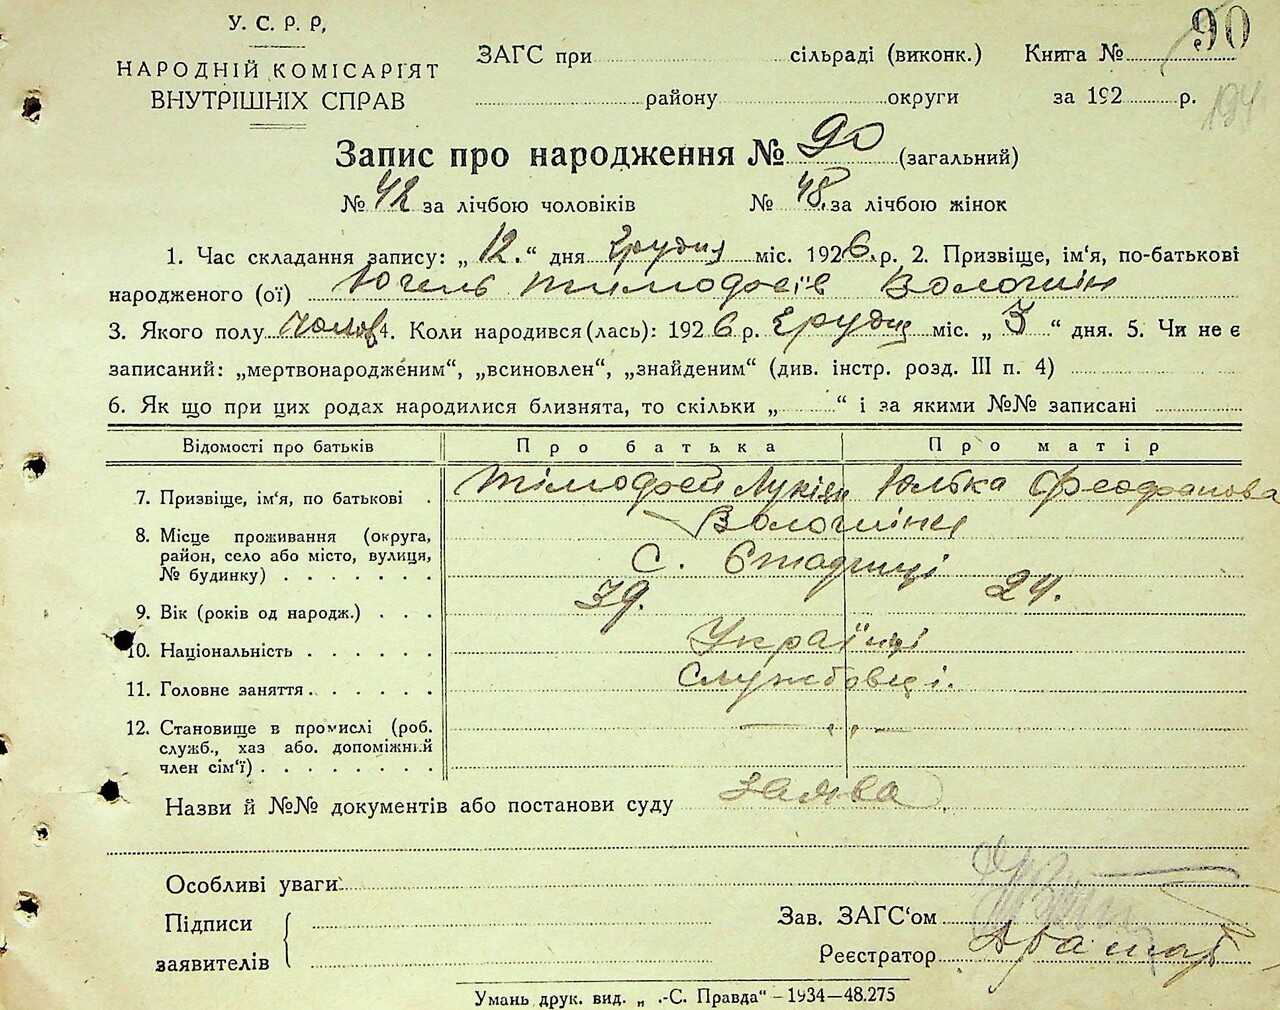 У. С. Р. Р.
НАРОДНІЙ КОМІСАРІЯТ
ВНУТРІШНІХ СПРАВ
ЗАГС при сільраді (виконк.) Книга №
90
району округи за 192 р.
194
Запис про народження № 90 (загальний)
№ 42 за лічбою чоловіків № 48. за лічбою жінок
1. Час складання запису: „ 12. “ дня Грудня міс. 1926. р. 2. Призвіще, ім'я, по-батькові
народженого (ої) Югель Тимофеїв Волошін
3. Якого полу чолов 4. Коли народився (лась): 1926 р. Грудня міс. „ 3 “ дня. 5. Чи не є
записаний: „мертвонародженим“, „всиновлен“, „знайденим“ (див. інстр. розд. III п. 4)
6. Як що при цих родах народилися близнята, то скільки „ “ і за якими №№ записані
Відомості про батьків Про батька Про матір
7. Призвіще, ім'я, по батькові . Тімофей Лукіян Юлька Феофанова
Волошіни
8. Місце проживання (округа,
район, село або місто, вулиця,
№ будинку) . . . . . . . С. Стадниці
9. Вік (років од народж.) . . . 39. 24.
10. Національність . . . . . . Українці
11. Головне заняття . . . . . . Службовці.
12. Становище в промислі (роб.
служб., хаз або. допоміжний
член сім'ї) . . . . . . . . — „ —
Назви й №№ документів або постанови суду заява
Особливі уваги
Підписи
заявителів
Зав. ЗАГС'ом
Реєстратор
Умань друк. вид. „ .-С. Правда“ – 1934—48.275